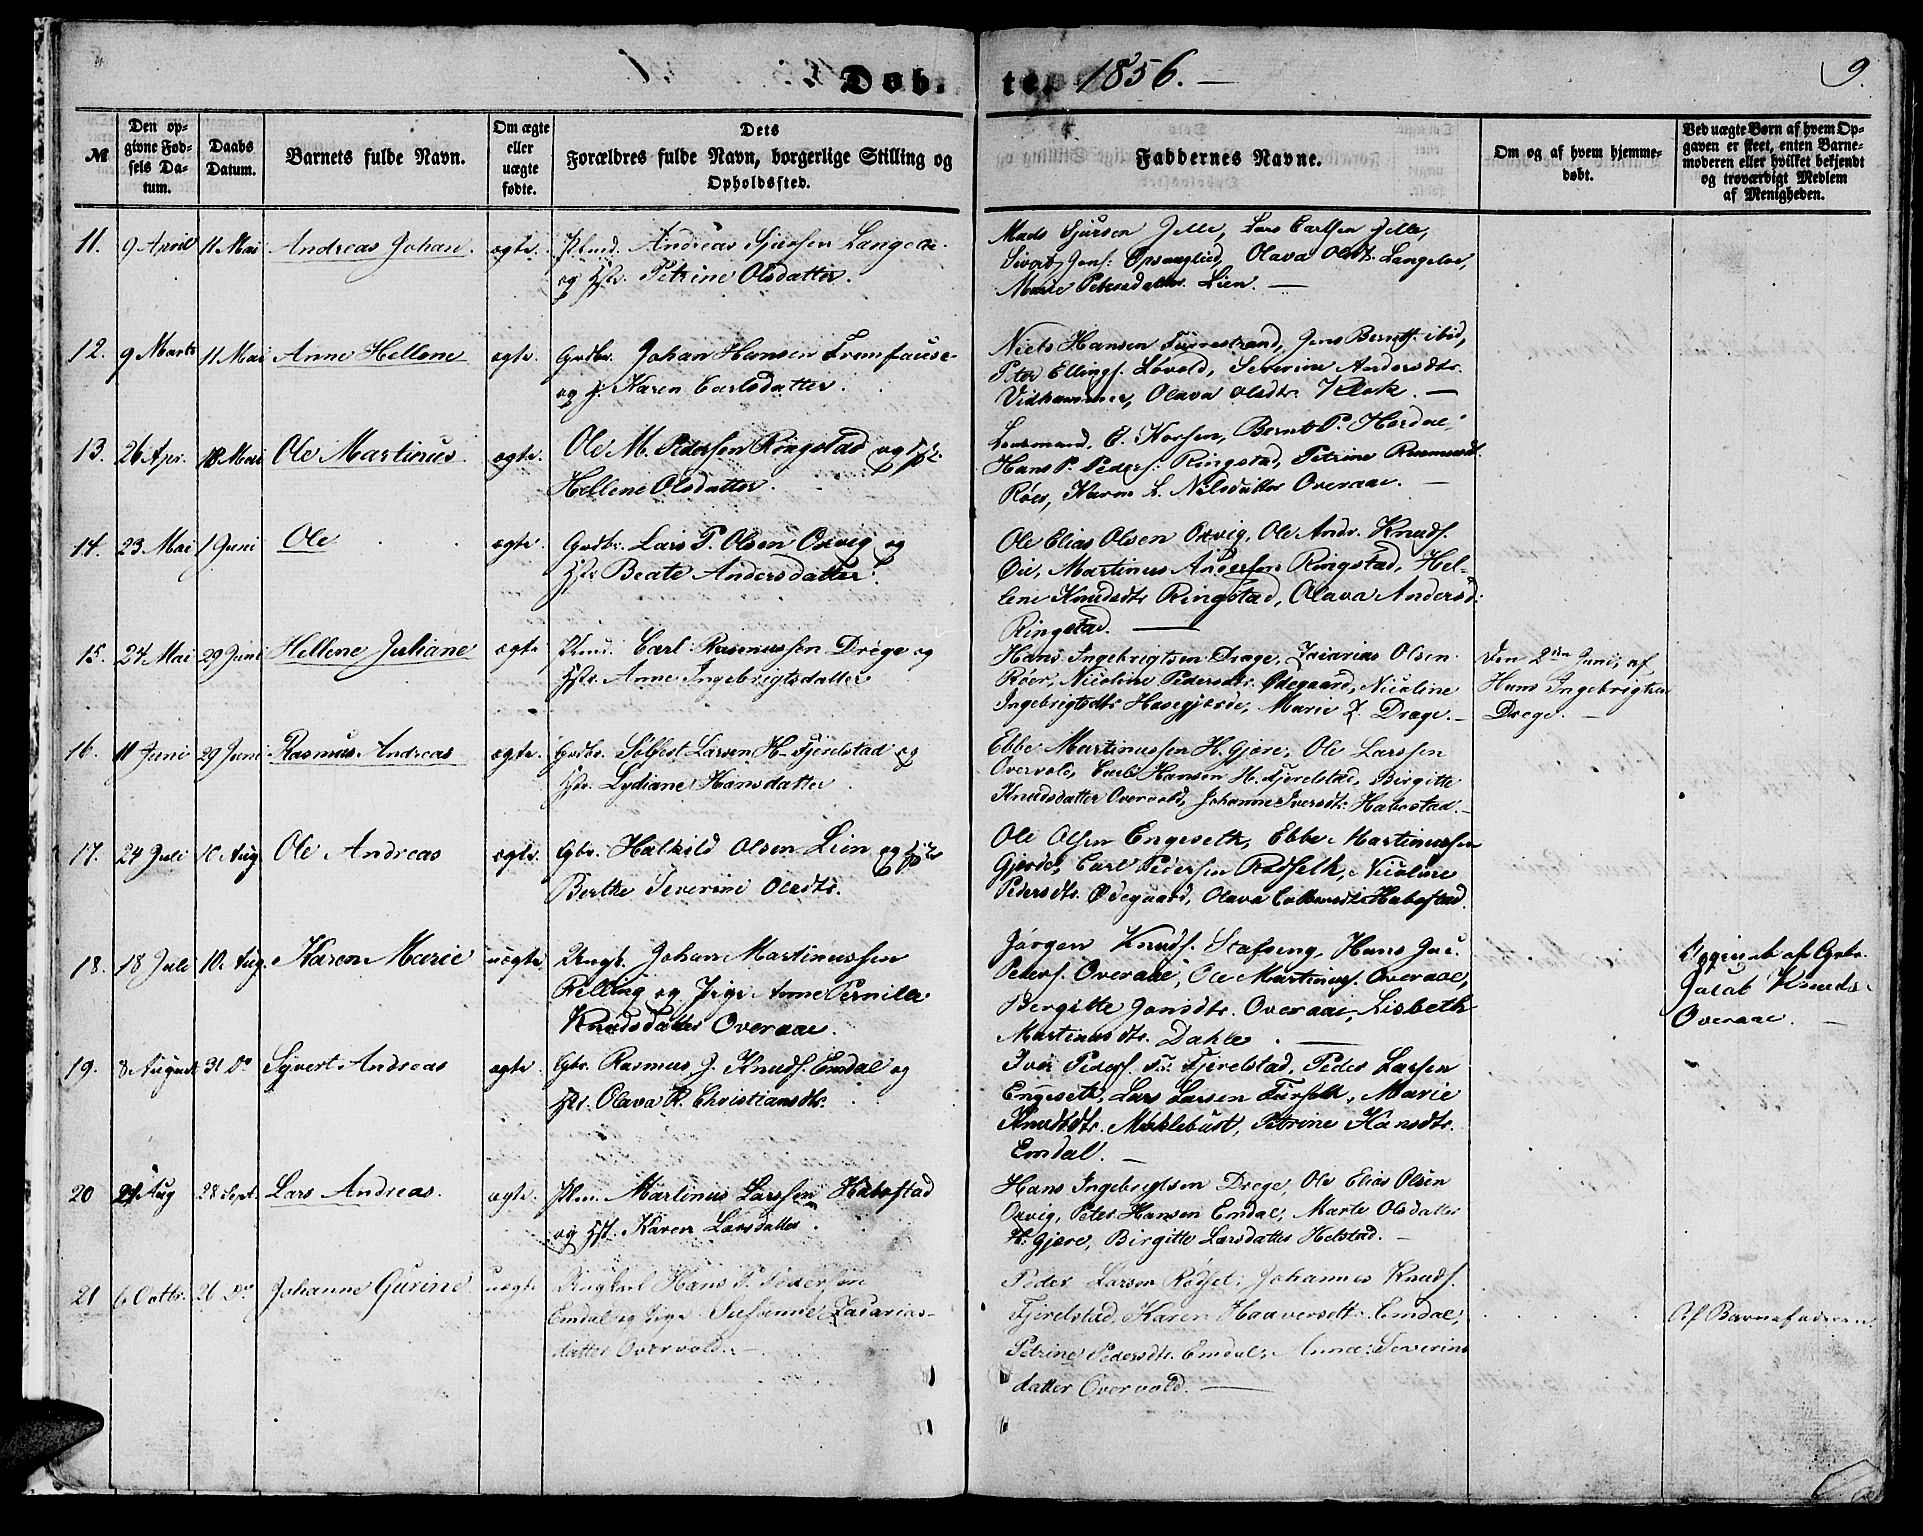 Døb- te. 1856. — 9.
№ | Den opgivne Fødsels Datum. | Daabs Datum. | Barnets fulde Navn. | Om ægte eller uægte fødte. | Dets Forældres fulde Navn, borgerlige Stilling og Opholdssted. | Faddernes Navne. | Om og af hvem hjemmedøbt. | Ved uægte Børn af hvem Opgaven er skeet, enten Barnemoderen eller hvilket bekjendt og troværdigt Medlem af Menigheden.
11. 9 April 11 Mai Andreas Johan. ægte. Andreas Sjursen Langeløe.
og Hstr. Petrine Olsdatter.
Mads Sjursen Jelle, Lars Carlsen Jelle,
Sivert Jons: Opsanglid, Olava Olsdt. Langeloe,
Marie Petersdatter Lien. —
12. 9 Marts 11 Mai Anne Hellene ægte. Grdbr. Johan Hansen
og H. Karen Carlsdatter.
Niels Hansen Furrestrand, Jens Berntss. ibid,
Peter Ellings. Løvold, Severine Andersdtr.
Vidhammer, Olava Olsdtr. Klok. —
13. 26 Apr. 18 Mai Ole Martinus ægte. Ole M. Pedersen Ringstad og Hstr.
Hellene Olsdatter.
Lensmand, E. Korsen, Bernt P. Hordal,
Hans P. Peders: Ringstad, Petrine Rasmusdt.
Røer, Karen L. Nilsdatter Overaae. —
14. 23 Mai 1 Juni Ole ægte. Grdbr. Lars P. Olsen Oxvig og
Hstr Beate Andersdatter.
Ole Elias Olsen Oxvig, Ole Andr. Knuds.
Øie, Martinus Andersen Ringstad, Hel-
lene Knudsdtr Ringstad, Olava Andersd:
Ringstad. —
15. 24 Mai 29 Juni Hellene Juliane ægte Carl Rasmussen Drege og
Hstr. Anne Ingebrigtsdatter
Hans Ingebrigtsen Drage, Zakarias Olsen
Røer, Nicoline Pedersdtr. Ødegaard, Nicoline
Ingebrigtsdtr Hasegjærde, Marie Z. Drage. —
Den 2den Juni, af
Hans Ingebrigtsen
Drege. —
16. 11 Juni 29 Juni Rasmus Andreas ægte. Grdbr. Sølfest Larsen H. Fjerelstad og
Hstr. Lydiane Hansdatter
Ebbe Martinussen H. Gjære, Ole Larssen
Overvold, Carl Hansen H. Fjerelstad, Birgitte
Knudsdatter Overvold, Johanne Iversdt: Habostad. —
17. 24 Juli 10 Aug. Ole Andreas ægte. Gbr. Halkild Olsen Lien og Hstr
Berthe Severine Olsdtr.
Ole Olsen Engeseth, Ebbe Martinussen
Gjærde, Carl Pedersen Rødseth, Nicoline
Pedersdtr. Ødegaard, Olava Habostad.
18. 18 Juli 10. Aug. Karen Marie uægte Ungk. Johan Martinussen
Relling og Pige Anne Pernille
Knudsdatter Overaae.
Jørgen Knuds. Stafseng, Hans Jac.
Peders. Overaae, Ole Martinus. Overaae,
Bergitte Jonsdtr. Overaae, Lisbeth
Martinusdtr. Dahle. —
Opgivet af Gbr.
Jacob Knuds.
Overaae. —
19. 8 August 31 Do Syvert Andreas ægte. Gbr. Rasmus J. Knuds. Emdal og
Hstr. Olava R. Christiansdtr.
Iver Peders. Fjerelstad, Peder Larsen
Engeseth, Lars Larsen Furseth, Marie
Knudsdtr. Myklebust, Petrine Hansdtr.
Emdal. —
20 24 Aug 28 Sept. Lars Andreas. ægte. Martinus Larssen Habostad
og Hst. Karen Larsdatter.
Hans Ingebrigtsen Drege, Ole Elias Olsen
Oxvig, Peter Hansen Emdal, Marte Olsdatter
H. Gjære, Birgitte Larsdatter Helstad. —
21 6 Octbr. 26 Do Johanne Gurine uægte Ungkarl Hans P. Pedersen
Emdal og Pige Susanne Zacarias-
datter Overvold. —
Peder Larsen Rødset, Johannes Knuds.
Fjerelstad, Karen Haaversdt: Emdal,
Petrine Pedersdtr. Emdal, Anne Severins
datter Overvold. —
Af Barnefaderen.